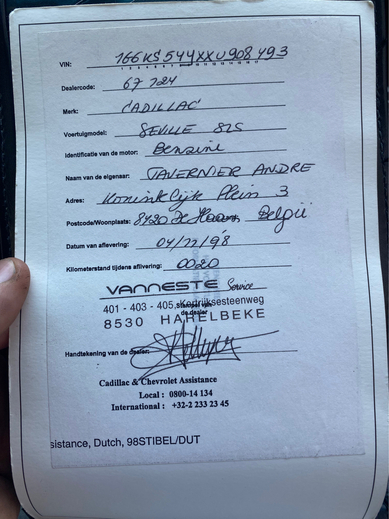 VIN: 166KS544XXU908493
1 2 3 4 5 6 7 8 9 10 11 12 13 14 15 16 17
Dealercode: 67 724
Merk: CADILLAC
Voertuigmodel: SEVILLE SLS
Identificatie van de motor: Benzine
Naam van de eigenaar: TAVERNIER ANDRE
Adres: Koninklijk Plein 3
Postcode/Woonplaats: 8420 De Haan België
Datum van aflevering: 04/12/98
Kilometerstand tijdens aflivering: 0020
VANNESTE Service
401 - 403 - 405, Kortrijksesteenweg
8530 HARELBEKE
Handtekening van de dealer:
Cadillac & Chevrolet Assistance
Local : 0800-14 134
International : +32-2 233 23 45
sistance, Dutch, 98STIBEL/DUT